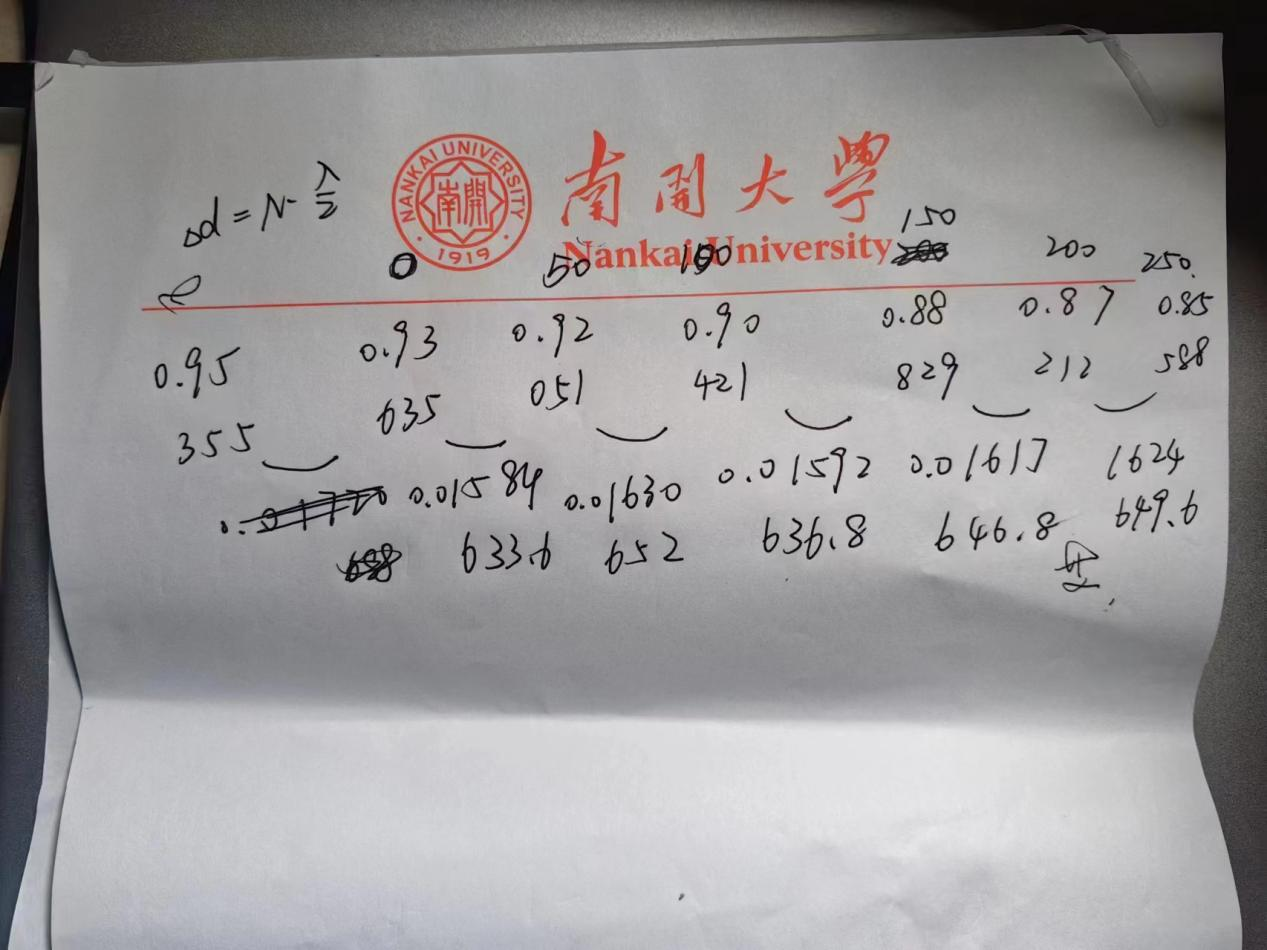 Δd = N · λ/2
NANKAI UNIVERSITY
南開
· 1919 ·
南開大學
Nankai University
0 50 100 150 200 250.
0.95 0.93 0.92 0.90 0.88 0.87 0.85
355 635 051 421 829 212 588
0.01584 0.01630 0.01592 0.01617 1624
633.6 652 636.8 646.8 649.6